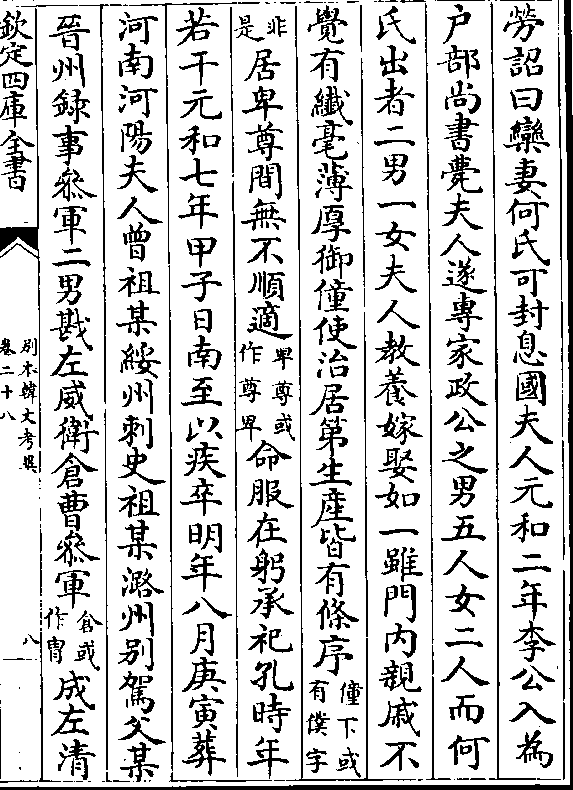 勞詔曰欒妻何氏可封息國夫人元和二年李公入為
户部尚書薨夫人遂專家政公之男五人女二人而何
氏出者二男一女夫人教養嫁娶如一雖門内親戚不
覺有纎毫薄厚御僮使治居第生産皆有條序僮下或有僕字
非是居卑尊間無不順適卑尊或作尊卑命服在躬承祀孔時年
若干元和七年甲子日南至以疾卒明年八月庚寅葬
河南河陽夫人曾祖某綏州刺史祖某潞州别駕父某
晉州録事叅軍二男戡左威衛倉曹叅軍倉或作胄成左清
欽定四庫全書
别本韓文考異
卷二十八
八